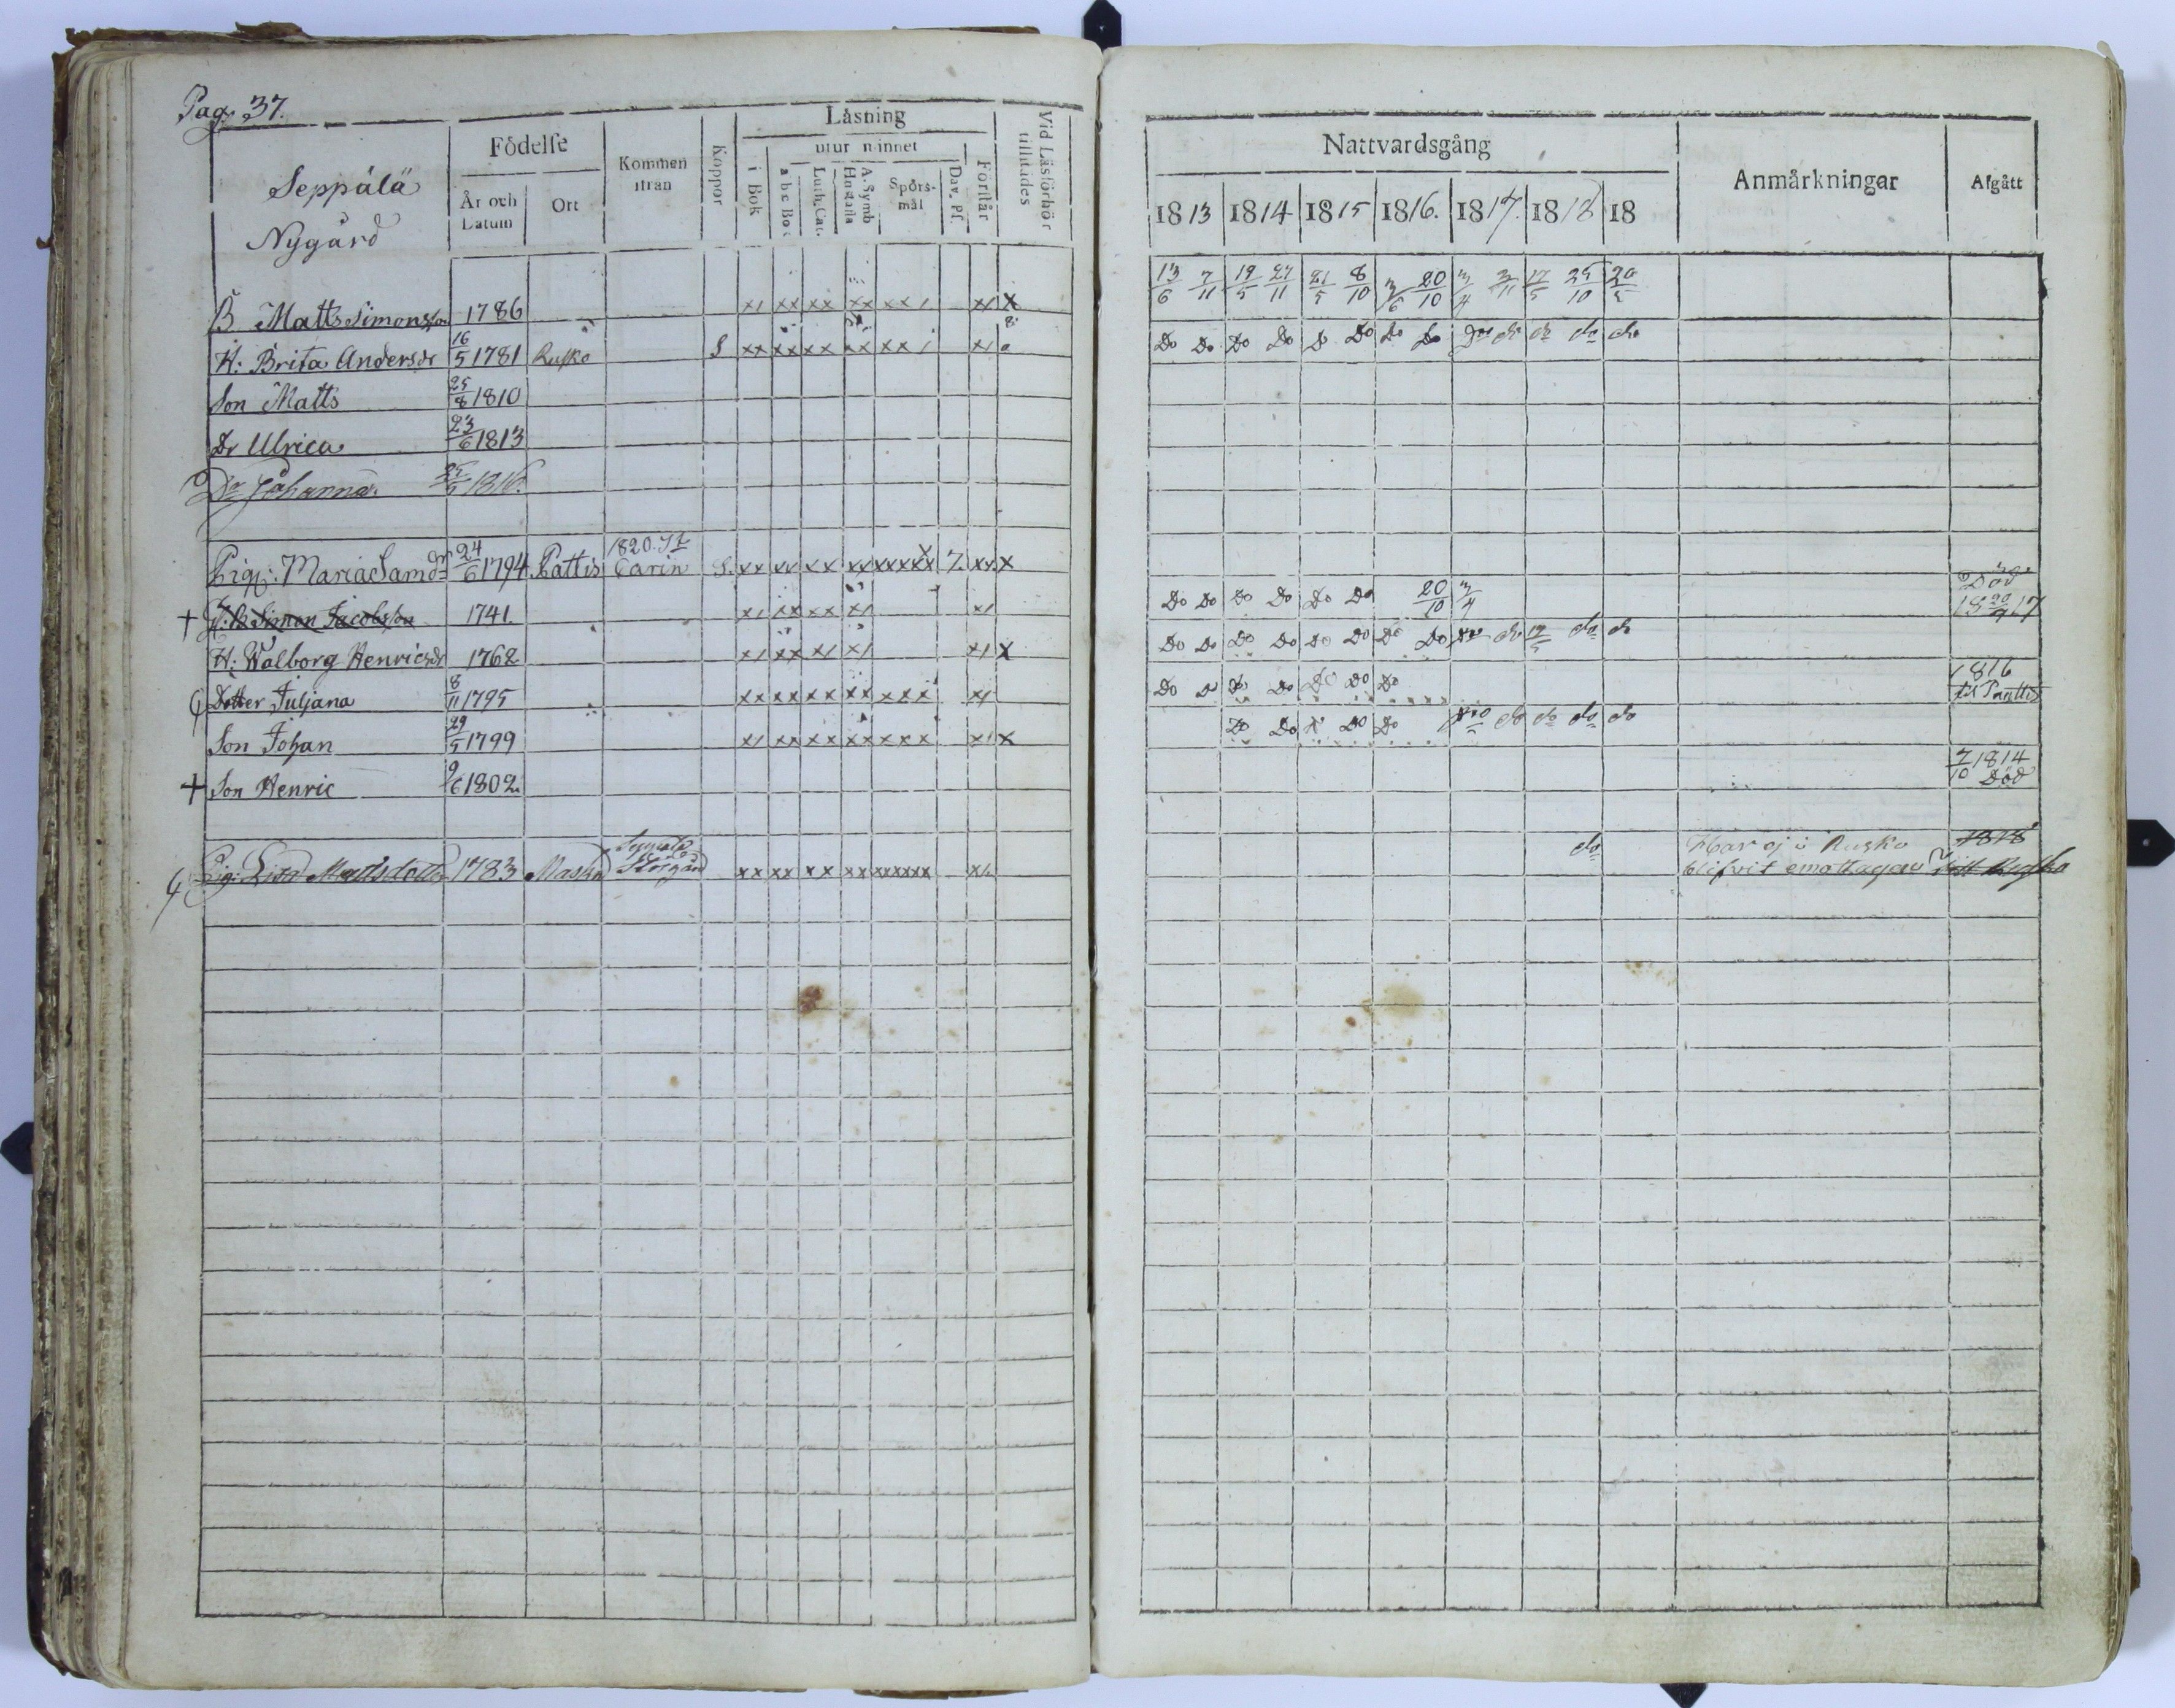 Pag. 37.
Seppälä
Nygård
Födelse
År och Datum
Ort
Kommen ifrån
Koppor
Läsning
utur minnet
i Bok
a b c Bok
Luth. Cat.
A. Symb. Hustafla
Spörsmål
Dav. Ps.
Förstår
Vid Läsförhör tillstådes
B Matts Simonsson 1786 x1 xx xx xx xx 1 x1 x
H: Brita Andersdr 16/5 1781 Rusko S xx xx xx xx xx 1 x1
Son Matts 25/8 1810
Dr Ulrica 23/6 1813
Dr Johanna 1816.
Pig: Maria Samdr 24/6 1794 Pattis 1820 Carin S. xx xx xx xx xxxxx 7. xx x
+ Simon Jacobsson 1741. x1 xx xx x1 x1
H: Walborg Henricsdr 1762 x1 xx x1 x1 x1 x
Dotter Juljana 8/11 1795 xx xx xx xx xxx x1
Son Johan 29/5 1799 x1 xx xx xx xxx x1 x
+ Son Henric 9/6 1802.
Pig: Lisa Mattsdotter 1783 Masku Seppälä Storgård xx xx xx xx xxxxxx x1.
Nattvardsgång
Anmärkningar
Afgått
1813 1814 1815 1816. 1817. 1818 18
13/6 7/11 19/5 27/11 21/5 8/10 3/6 20/10 3/4 3/11 17/5 25/10 20/5
Do Do Do Do Do Do Do Do Do do do do do
Do Do Do Do Do Do 20/10 3/4 Död 18 20/9 17
Do Do Do Do Do Do Do Do do 19/5 do do
Do Do Do Do Do Do Do 1816 til Panttis
Do Do Do Do Do do do do do
7/10 1814 Död
do Har ej i Rusko 1818
blifvit emottagen till Rusko